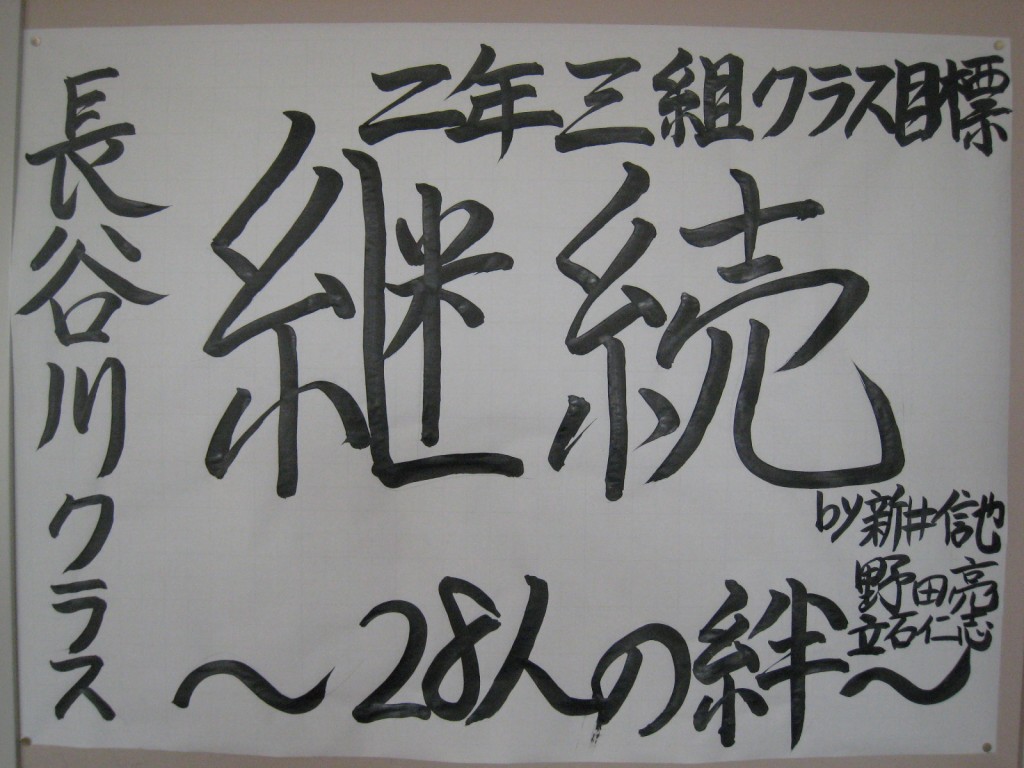 二年三組クラス目標
継続
～28人の絆～
長谷川クラス
by新井信也
野田亮
立石仁志